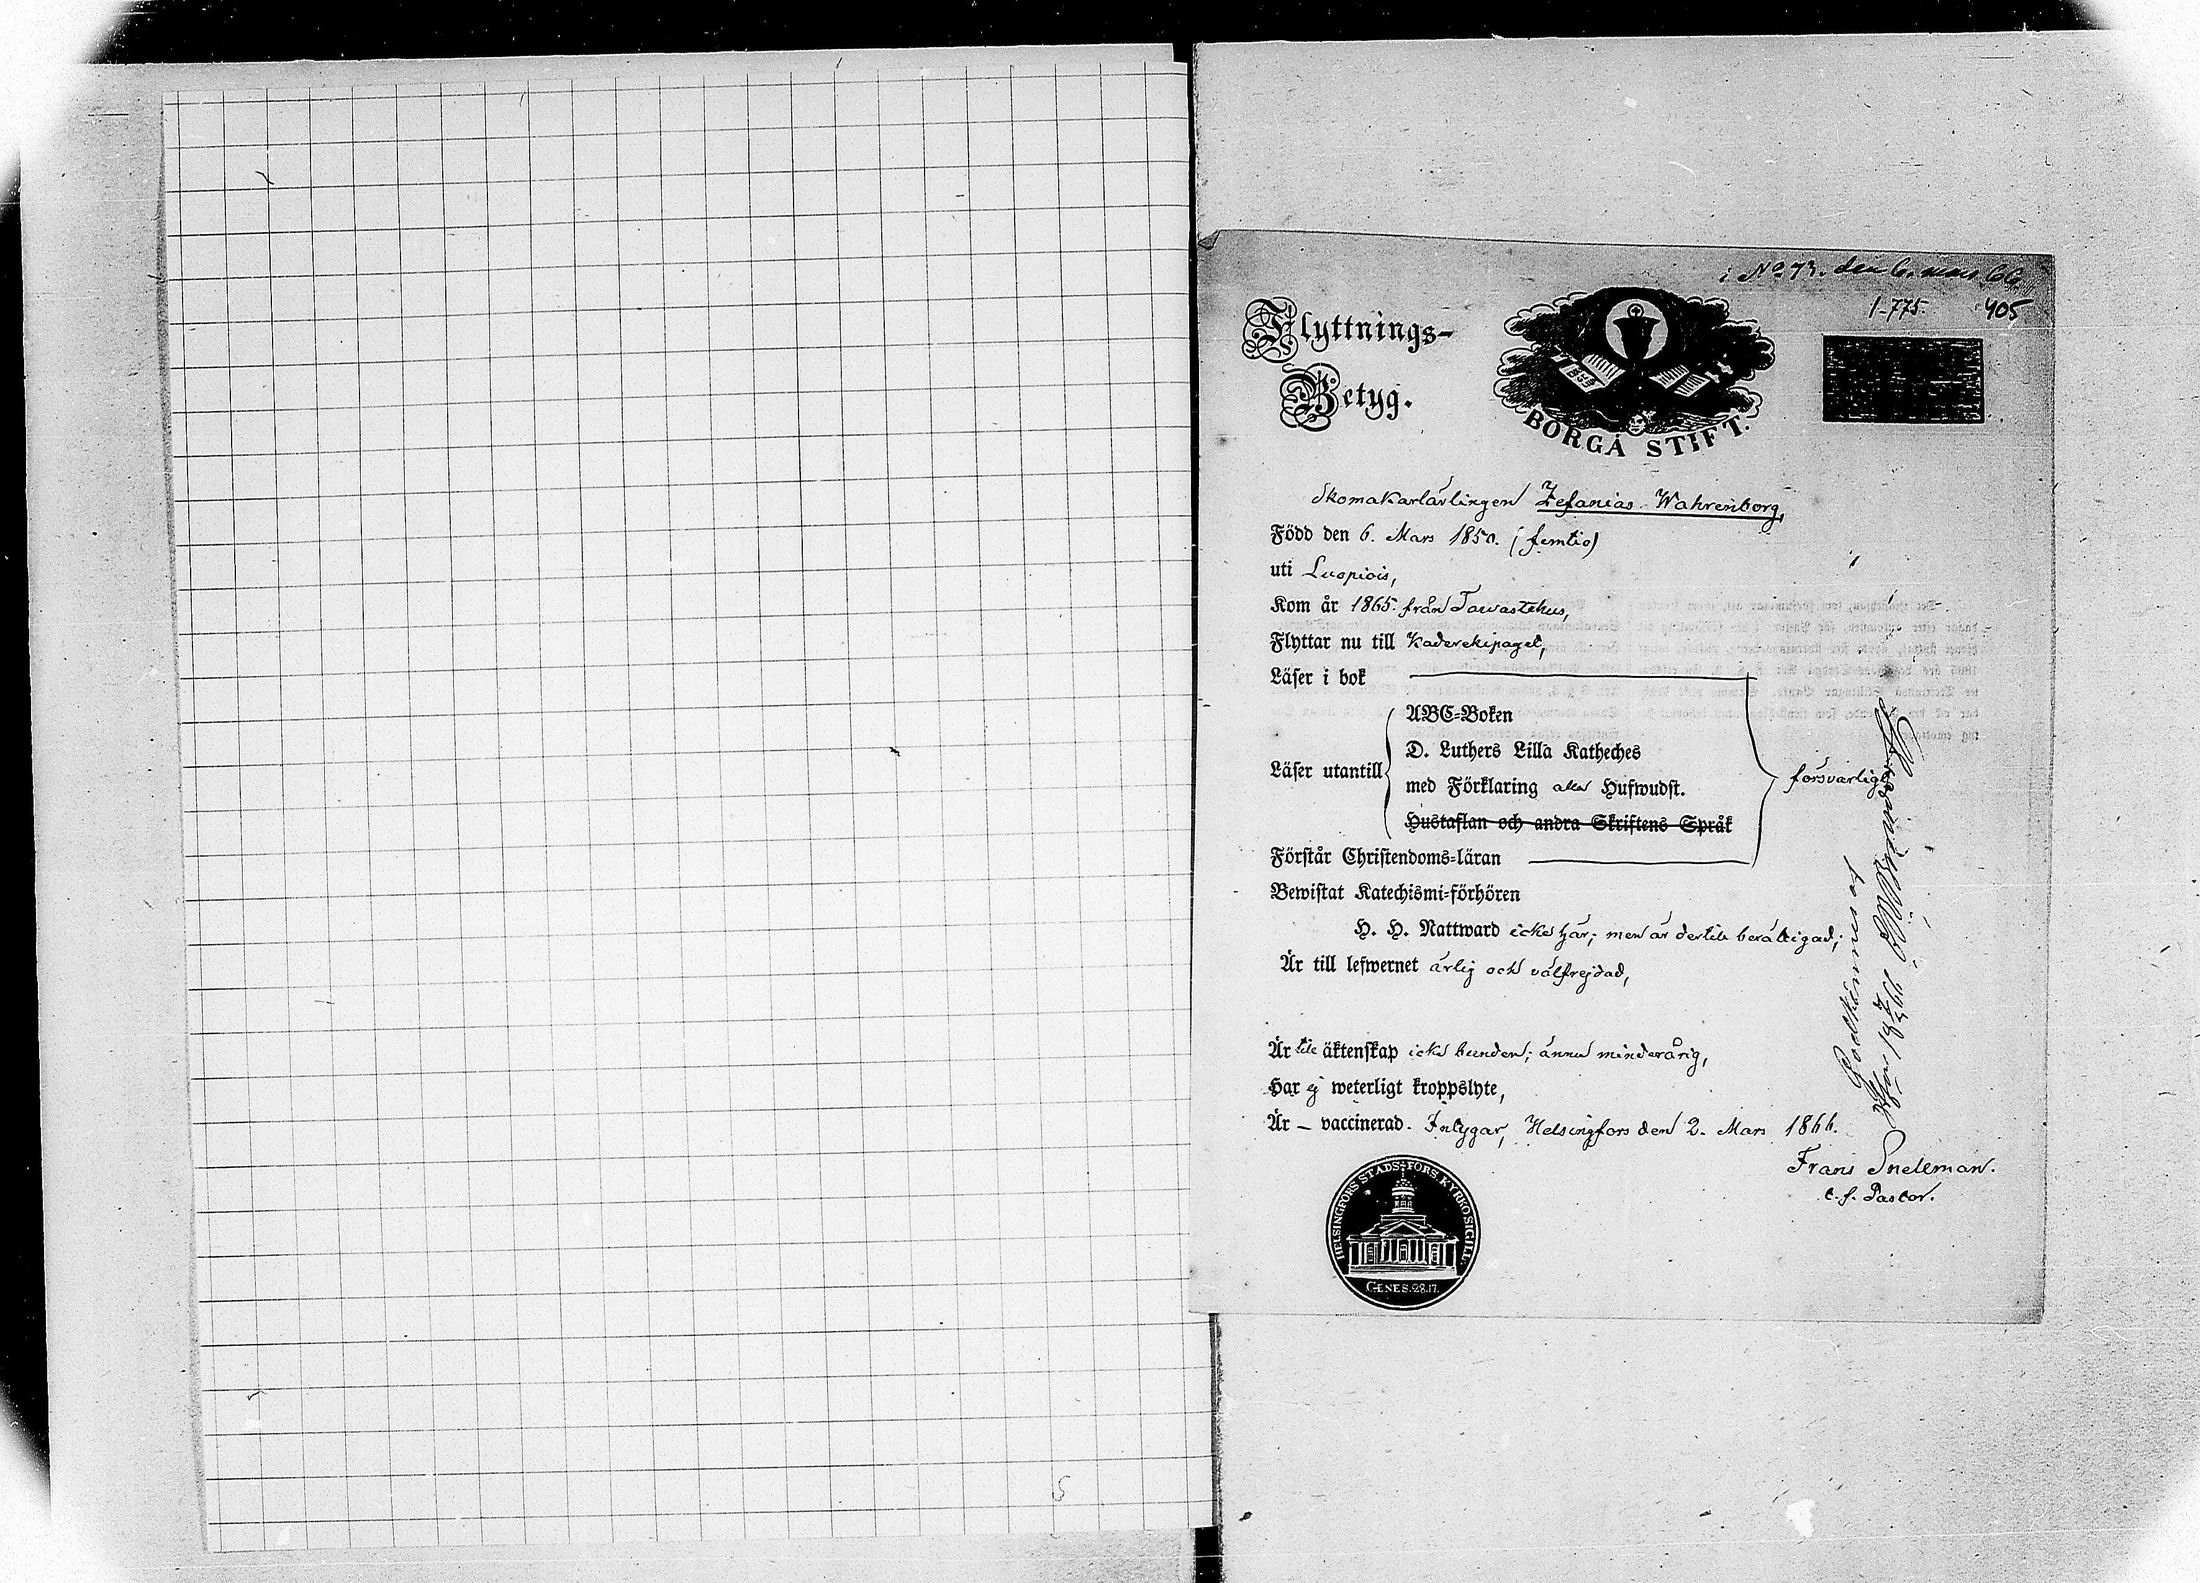 i No 73. den 6. mars 66
1-775. 405
Flyttnings-
Betyg.
BORGÅ STIFT.
Skomakarlärlingen Zefanias Wahrenborg,
Född den 6. Mars 1850. (femtio)
uti Luopiois,
Kom år 1865. från Tawastehus,
Flyttar nu till Kaderekipaget,
Läser i bok
ABC-Boken
D. Luthers Lilla Katheches
Läser utantill
med Förklaring Hufwudst.
försvarligt
Hustaflan och andra Skriftens Språk
Förstår Christendoms-läran
Bewistat Katechismi-förhören
H. H. Nattward icke här; men är dertill berättigad;
Är till lefwernet ärlig och välfrejdad,
Är till äktenskap icke bunden; ännu minderårig,
Har ej weterligt kroppslyte,
Är – vaccinerad. Intygar, Helsingfors den 2. Mars 1866.
Frans Snellman.
t. f. Pastor.
Godkännes af
HELSINGFORS STADS-FÖRS. KYRKOSIGILL.
GENES. 28.17.